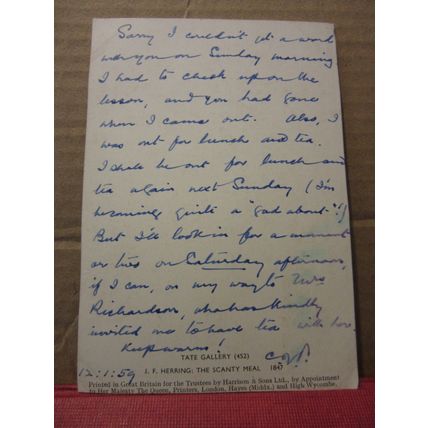 Sorry I couldn't get a word
with you on Sunday morning
I had to check up on the
lesson, and you had gone
when I came out. Also, I
was out for lunch and tea.
I shall be out for lunch and
tea again next Sunday (I'm
becoming quite a "gad about"!)
But I'll look in for a moment
or two on Saturday afternoon,
if I can, on my way to Mrs
Richardson, who has kindly
invited me to have tea with her.
Keep warm!
12.1.59
TATE GALLERY (452)
J. F. HERRING: THE SCANTY MEAL 1847
Printed in Great Britain for the Trustees by Harrison & Sons Ltd., by Appointment
to Her Majesty The Queen, Printers, London, Hayes (Middx.) and High Wycombe.